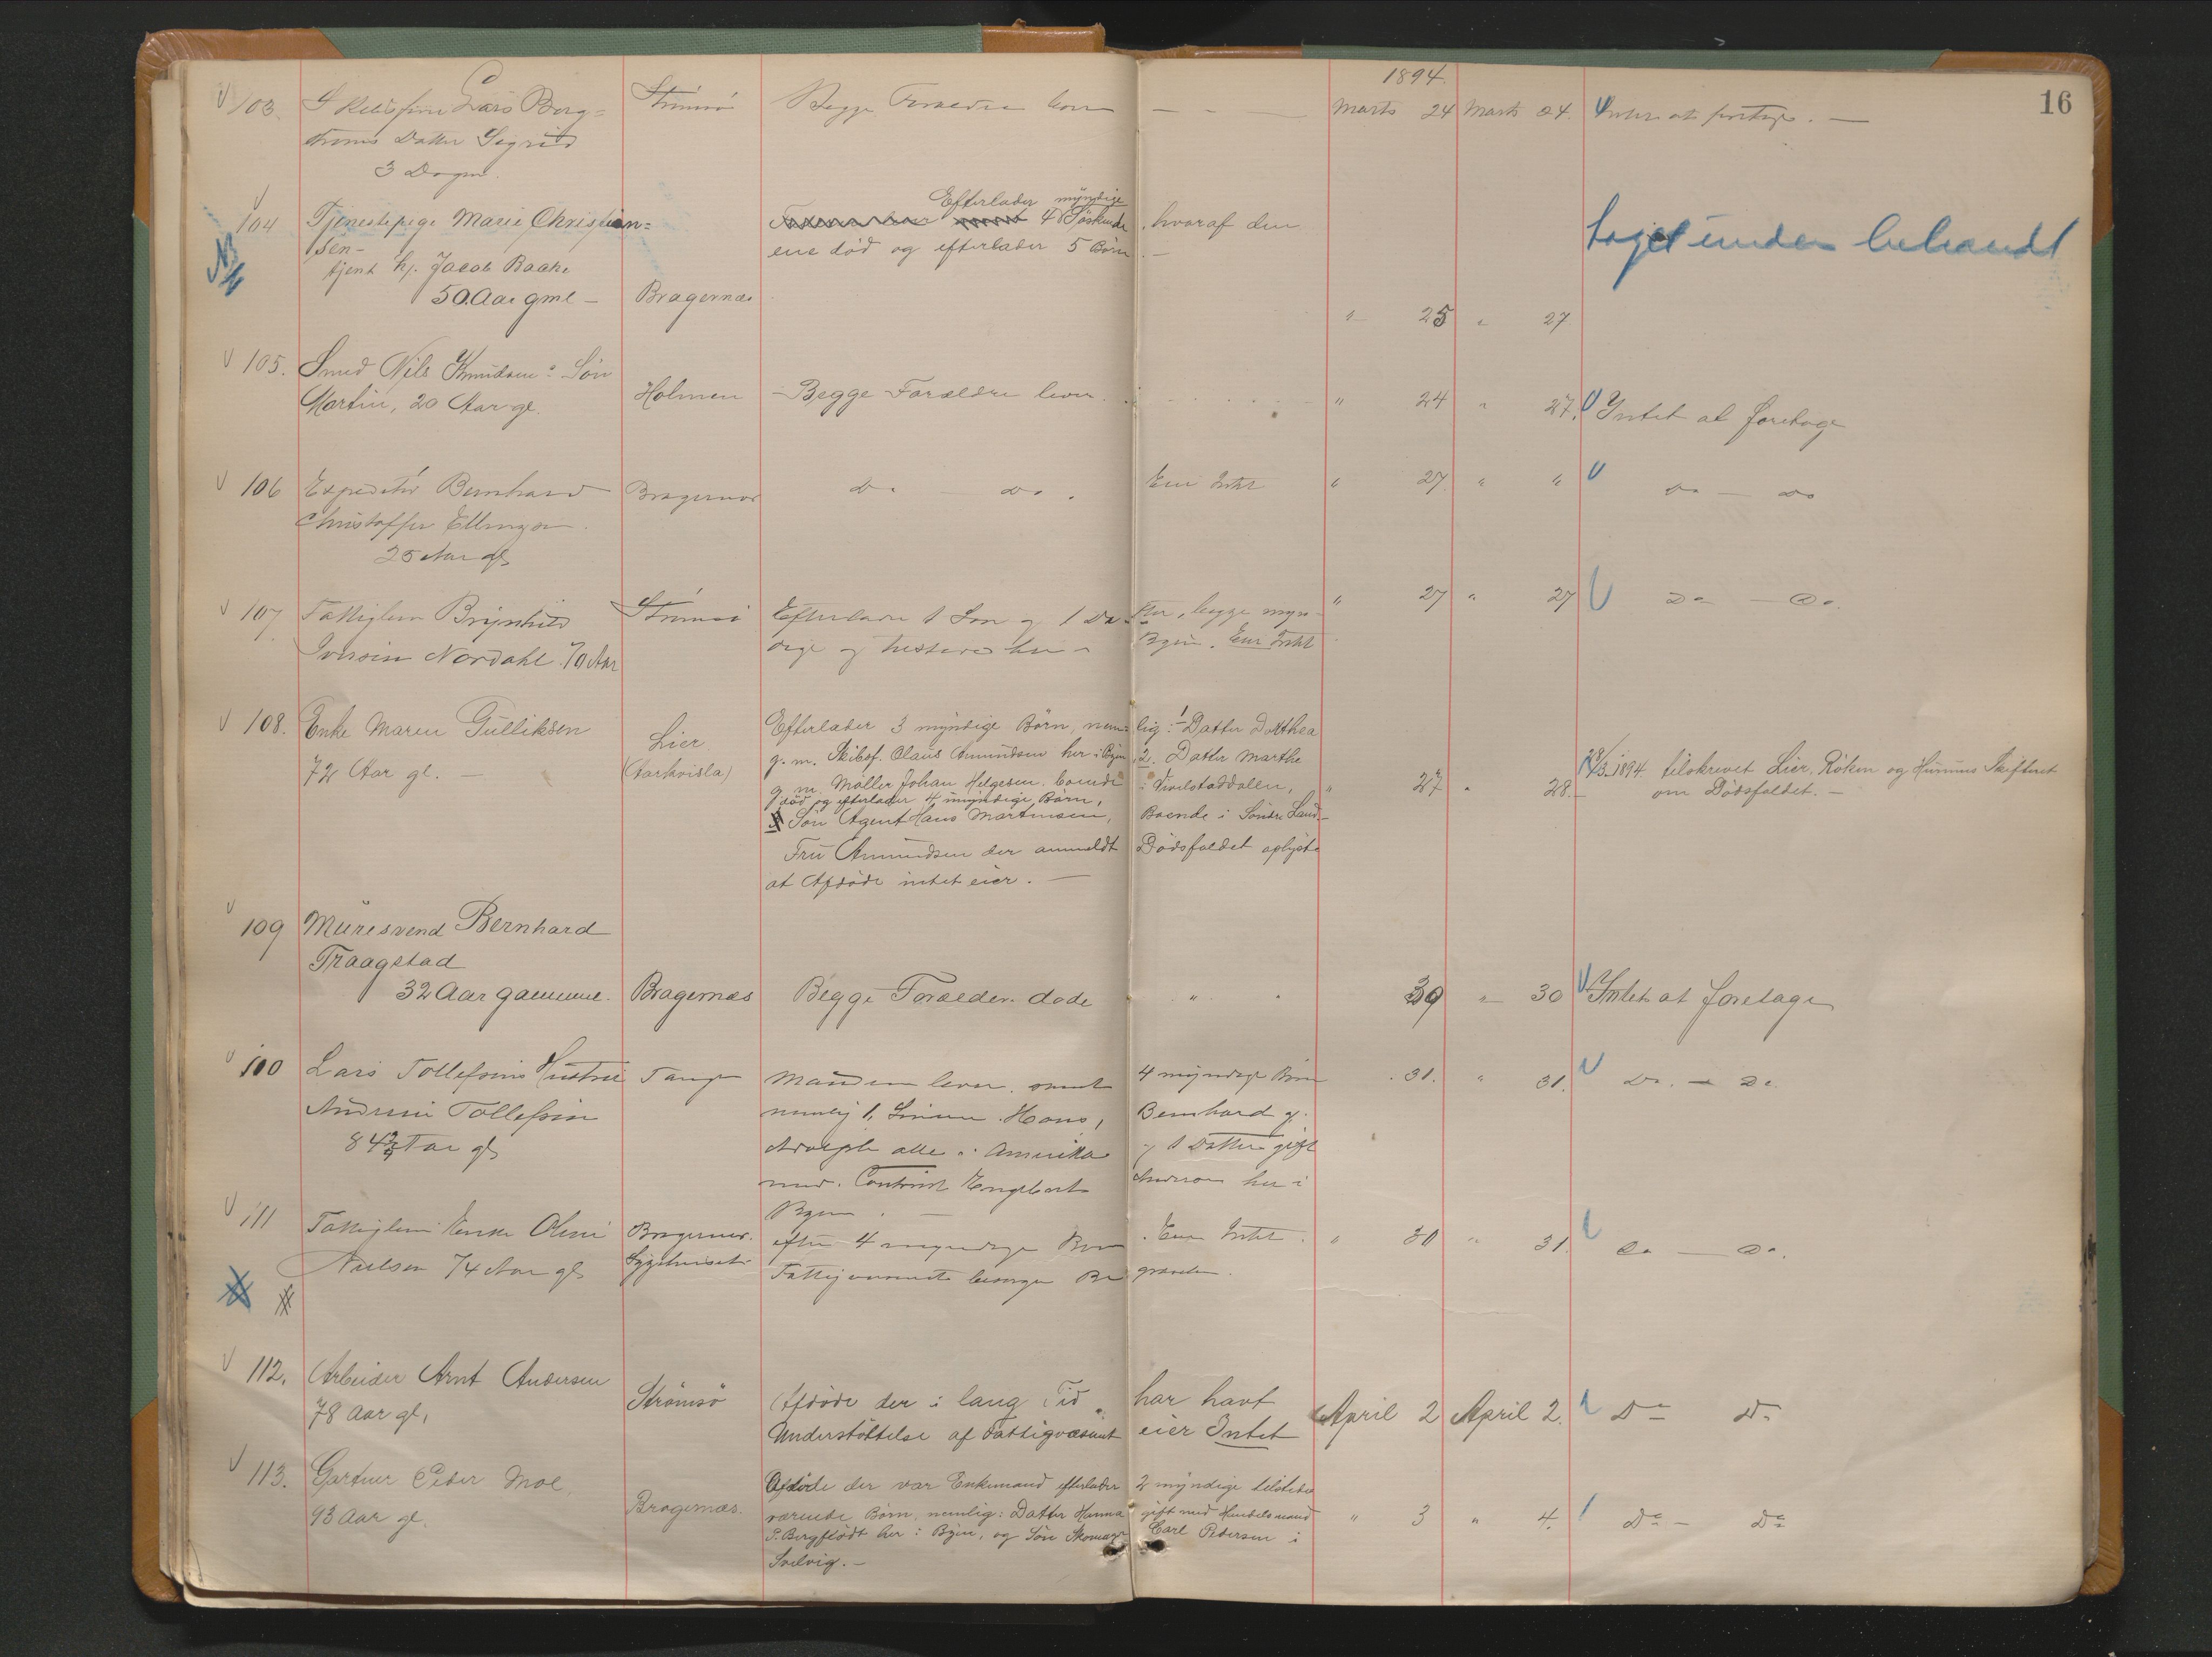 16
1894
103. Lars Berg=
Strømsø
Begge Forældre lever — —
Marts 24 Marts 24. Intet at foretage. —
Datter Sigrid
3 Dage
104 Tjenestepige Marie Christian=
sen –
tjent hj. Jacob Baake
50. Aar gml – Bragernæs
Efterlader myndige
4 Söskende, hvoraf den
ene död og efterlader 5 Börn. –
" 25 " 27
taget under behandl
105. Smed Nils Knudsens Sön
Martin, 20 Aar gl.
Holmen
Begge Forældre lever.
" 24 " 27. Intet at foretage
106 Expeditör Bernhard
Christoffer Ellingsen.
25 Aar gl
Bragernæs
do — do. Eier Intet
" 27 " "
do — do
107 Fattiglem Brynhild
Iversen Nordahl 70 Aar
Strømsø
Efterlader 1 Søn og 1 Datter, begge myn-
dige og her i Byen. Eier Intet
" 27 " 27
Do — Do.
108. Enke Maren Gulliksen
72 Aar gl. —
Lier
(Aarkvisla)
Efterlader 3 myndige Börn, nemlig: 1 Datter Dorthea
g. m. Skibsf. Olaus Amundsen her i Byen, 2. Datter Marthe
g. m. Möller Johan Helgesen, boende i Tverlstaddalen,
död og efterlader 4 umyndige Börn,
Sön Agent Hans Martinsen, Boende i Söndre Land. –
Fru Amundsen der anmeldt Dödsfaldet oplyste
at Afdöde intet eier. —
" 27 " 28. –
28/3. 1894 tilskrevet Lier, Röken og Hurums Skifteret
om Dödsfaldet. –
109 Müresvend Bernhard
Traagstad
32 Aar gamme. Bragernæs
Begge Forælder döde " "
30 " 30 Intet at foretage
110 Lars Tollefsens Hustru
Tollefsen
84 Aar gl
Tangen
Manden lever, samt 4 myndige Börn
nemlig 1, Sönnen Hans, Bernhard og
Adolph alle i Amerika og 1 Datter gift
med Engelbert Anderson her i
Byen. —
. 31. " 31. Do. — Do.
111 Fattiglem Enke Oline
Nielsen 74 Aar gl
Bragernæs.
Sygehuset
efter 4 myndige Börn. Eier Intet.
Fattigvæsenet besørger Begravelsen.
" 30 " 31. Do — Do.
112. Arbeider Arnt Andersen
78 Aar gl,
Strömsö
Afdöde der i lang Tid har havt
Understöttelse af Fattigvæsenet eier Intet
April 2 April 2. Do Do
113. Gartner Peder Moe,
93 Aar gl.
Bragernæs.
Afdöde der var Enkemand efterlader 2 myndige tilstede
værende Börn, nemlig: Datter Hanna gift med Handelsmand
P. Bergflödt her i Byen, og Sön Skomager Carl Pedersen i
Svelvig. –
" 3 " 4. Do – Do